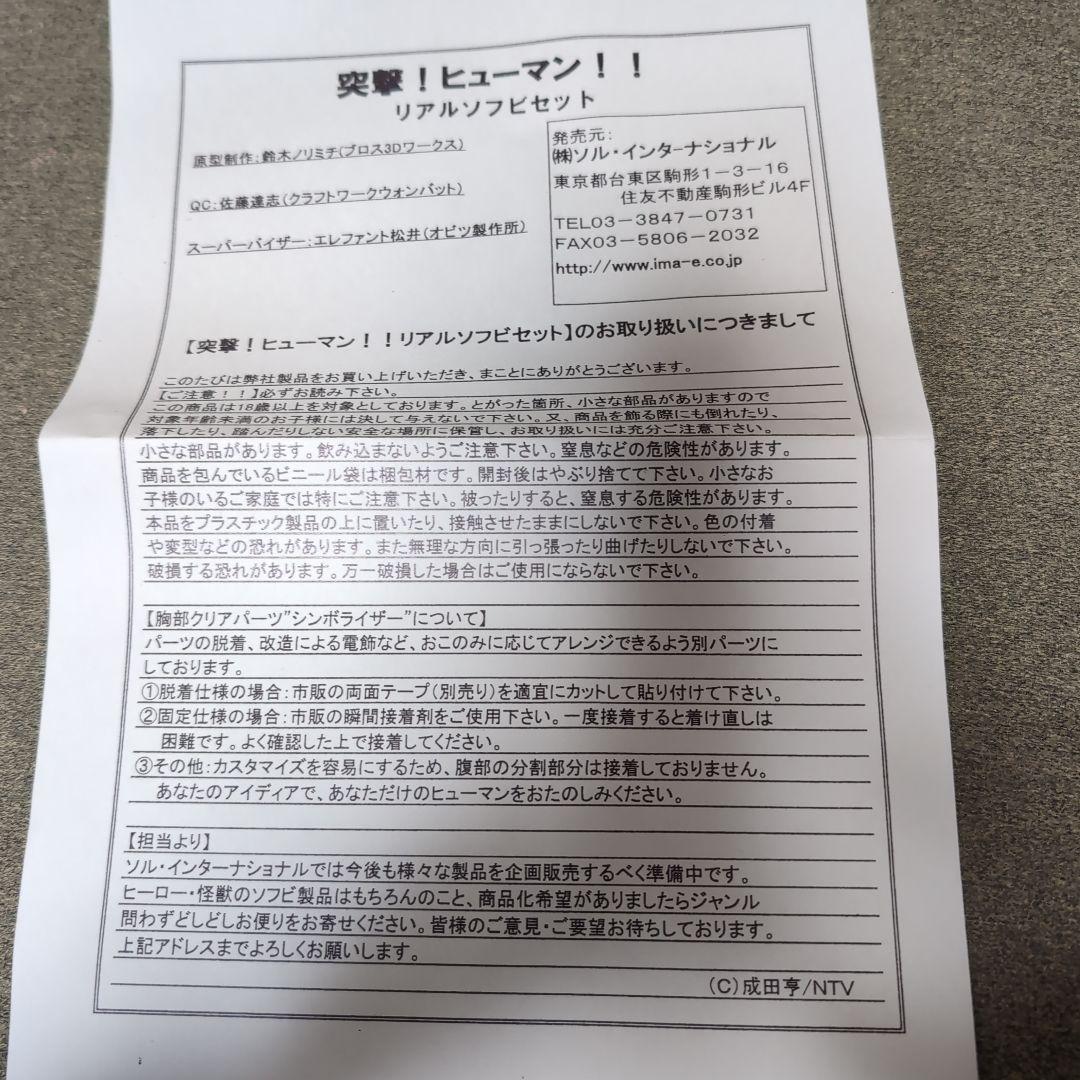 突撃！ヒューマン！！
リアルソフビセット
原型制作：鈴木ノリミチ(ブロス3Dワークス)
QC：佐藤達志(クラフトワークウォンバット)
スーパーバイザー：エレファント松井(オビツ製作所)
発売元：
㈱ソル・インターナショナル
東京都台東区駒形1－3－16
住友不動産駒形ビル4F
TEL03－3847－0731
FAX03－5806－2032
http://www.ima-e.co.jp
【突撃！ヒューマン！！リアルソフビセット】のお取り扱いにつきまして
このたびは弊社製品をお買い上げいただき、まことにありがとうございます。
【ご注意！！】必ずお読み下さい。
この商品は18歳以上を対象としております。とがった箇所、小さな部品がありますので
対象年齢未満のお子様には決して与えないで下さい。又、商品を飾る際にも倒れたり、
落下したり、踏んだりしない安全な場所に保管し、お取り扱いには充分ご注意下さい。
小さな部品があります。飲み込まないようご注意下さい。窒息などの危険性があります。
商品を包んでいるビニール袋は梱包材です。開封後はやぶり捨てて下さい。小さなお
子様のいるご家庭では特にご注意下さい。被ったりすると、窒息する危険性があります。
本品をプラスチック製品の上に置いたり、接触させたままにしないで下さい。色の付着
や変型などの恐れがあります。また無理な方向に引っ張ったり曲げたりしないで下さい。
破損する恐れがあります。万一破損した場合はご使用にならないで下さい。
【胸部クリアパーツ”シンボライザー”について】
パーツの脱着、改造による電飾など、おこのみに応じてアレンジできるよう別パーツに
しております。
①脱着仕様の場合：市販の両面テープ(別売り)を適宜にカットして貼り付けて下さい。
②固定仕様の場合：市販の瞬間接着剤をご使用下さい。一度接着すると着け直しは
困難です。よく確認した上で接着してください。
③その他：カスタマイズを容易にするため、腹部の分割部分は接着しておりません。
あなたのアイディアで、あなただけのヒューマンをおたのしみください。
【担当より】
ソル・インターナショナルでは今後も様々な製品を企画販売するべく準備中です。
ヒーロー・怪獣のソフビ製品はもちろんのこと、商品化希望がありましたらジャンル
問わずどしどしお便りをお寄せください。皆様のご意見・ご要望お待ちしております。
上記アドレスまでよろしくお願いします。
(C)成田亨/NTV